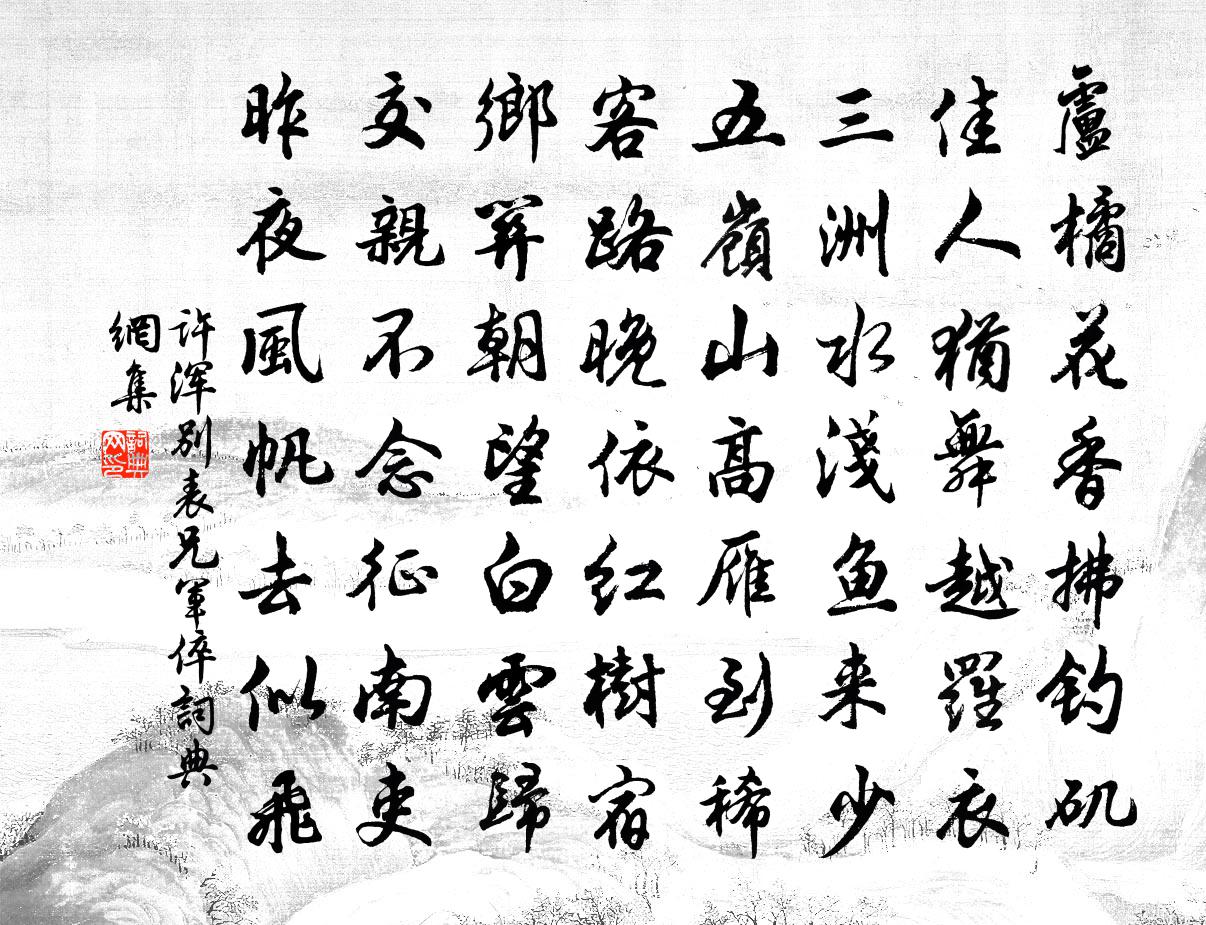 盧橘花香拂钓矶
佳人猶舞越羅衣
三洲水淺魚来少
五嶺山高雁到稀
客路晚依红樹宿
鄉關朝望白雲歸
交親不念征南吏
昨夜風帆去似飛
許浑别表兄軍倅詞典
網集